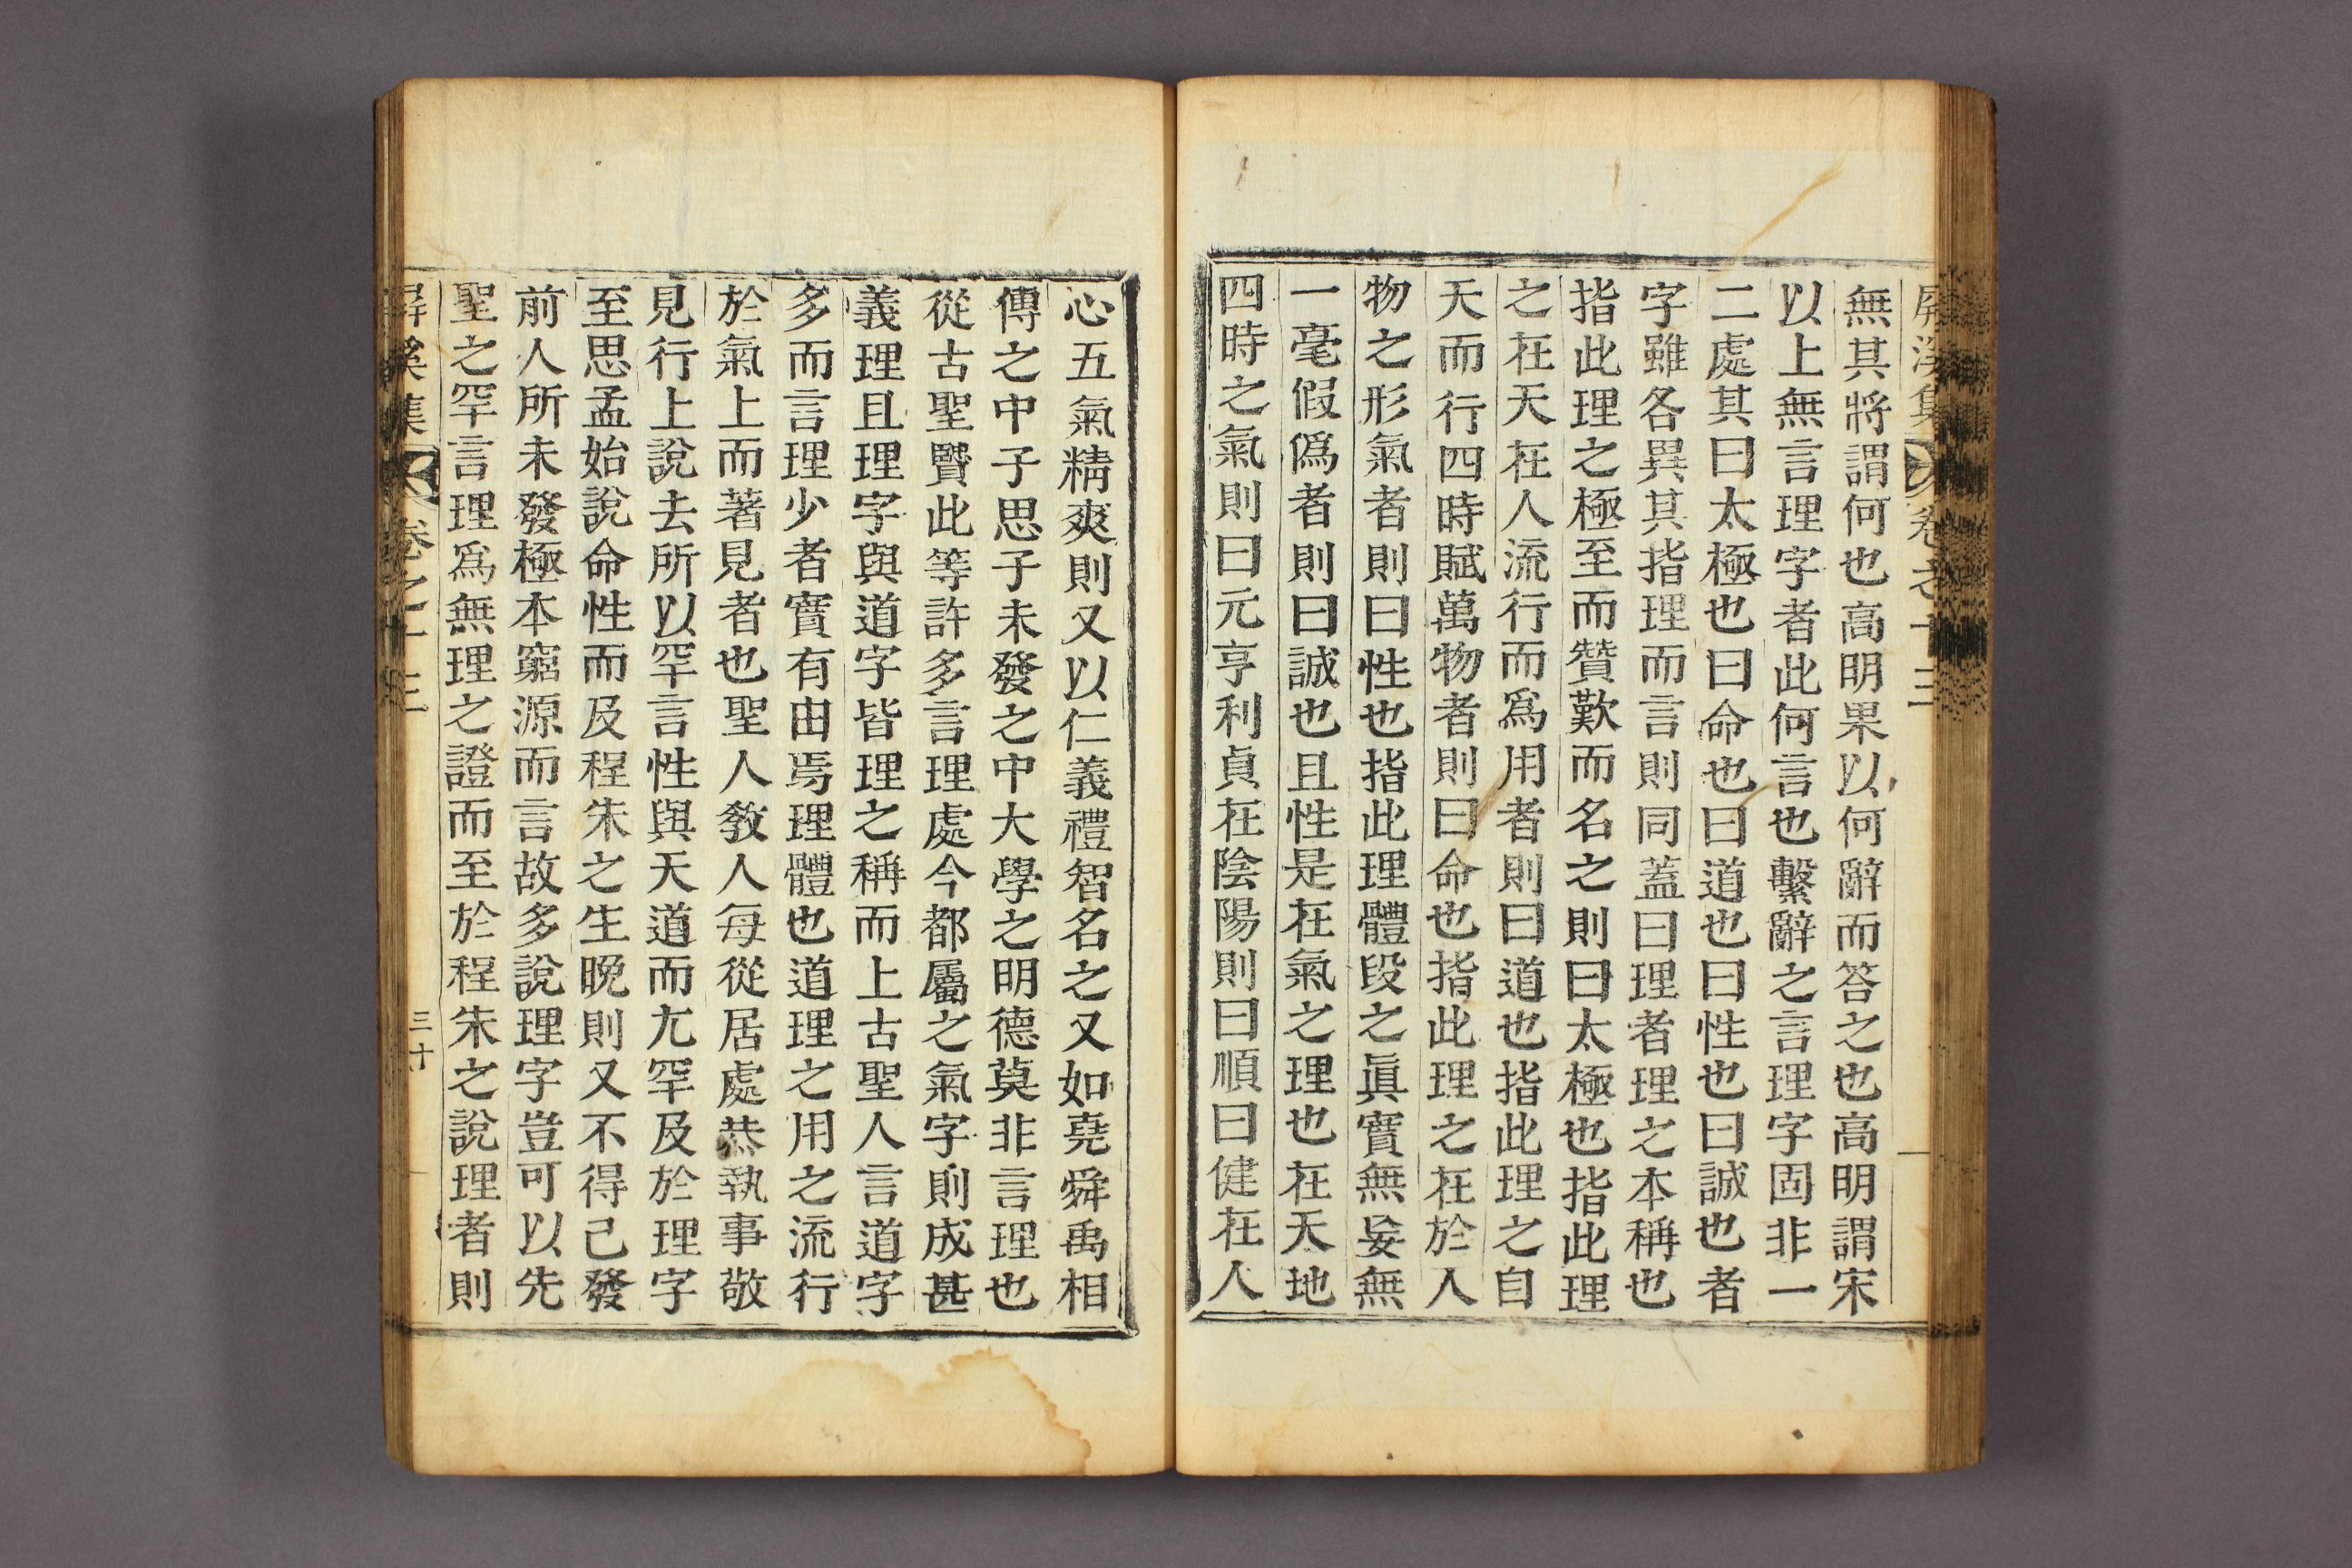 屛溪集 卷之十三
無其將謂何也高明果以何辭而答之也高明謂宋
以上無言理字者此何言也繫辭之言理字固非一
二處其曰太極也曰命也曰道也曰性也曰誠也者
字雖各異其指理而言則同蓋曰理者理之本稱也
指此理之極至而贊歎而名之則曰太極也指此理
之在天在人流行而爲用者則曰道也指此理之自
天而行四時賦萬物者則曰命也指此理之在於人
物之形氣者則曰性也指此理體段之眞實無妄無
一毫假僞者則曰誠也且性是在氣之理也在天地
四時之氣則曰元亨利貞在陰陽則曰順曰健在人
心五氣精爽則又以仁義禮智名之又如堯舜禹相
傳之中子思子未發之中大學之明德莫非言理也
從古聖賢此等許多言理處今都屬之氣字則成甚
義理且理字與道字皆理之稱而上古聖人言道字
多而言理少者實有由焉理體也道理之用之流行
於氣上而著見者也聖人敎人每從居處恭執事敬
見行上說去所以罕言性與天道而尢罕及於理字
至思孟始說命性而及程朱之生晚則又不得已發
前人所未發極本窮源而言故多說理字豈可以先
聖之罕言理爲無理之證而至於程朱之說理者則
屛溪集 卷之十三 三十